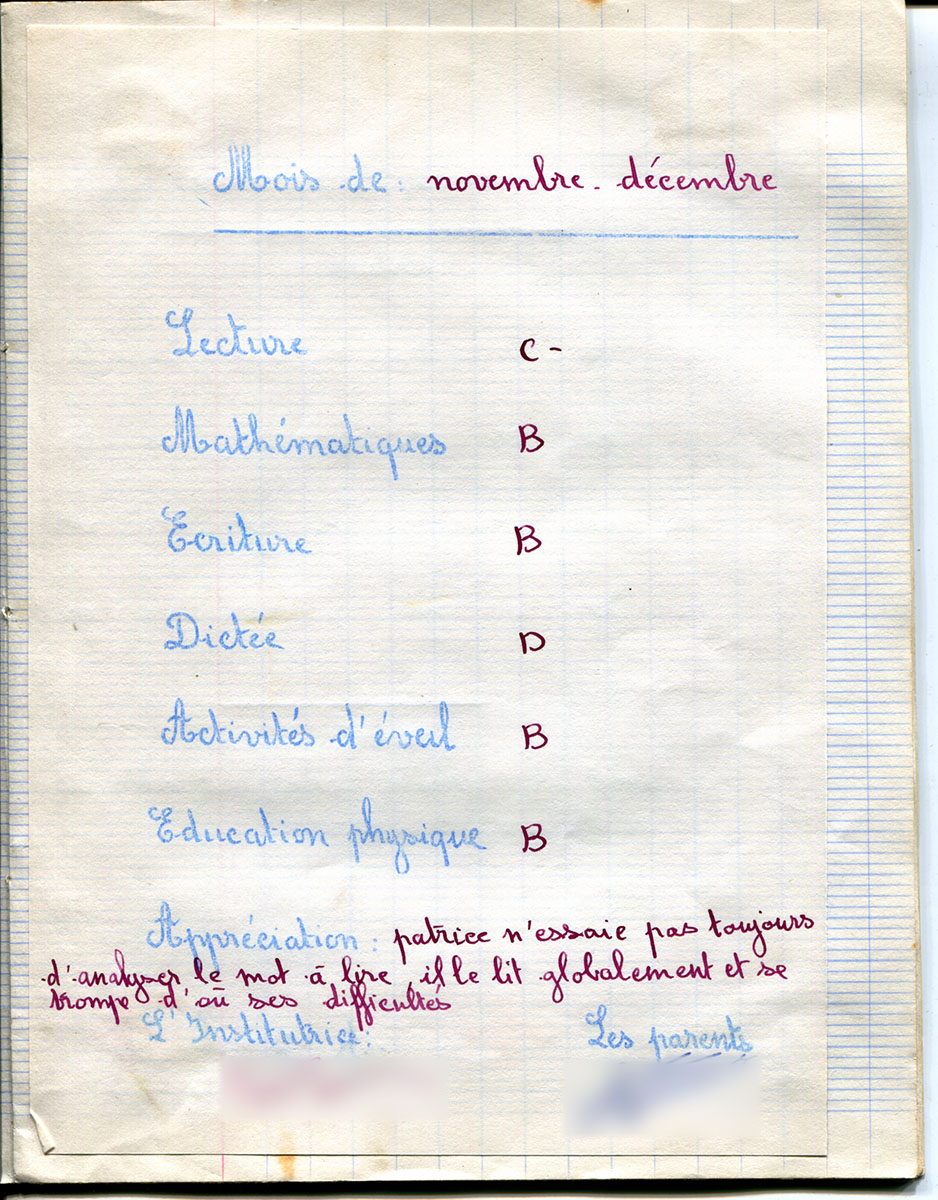 Mois de : novembre - décembre
Lecture C -
Mathématiques B
Ecriture B
Dictée D
Activités d'éveil B
Education physique B
Appréciation : patrice n'essaie pas toujours
d'analyser le mot à lire, il le lit globalement et se
trompe d'où ses difficultés
L'Institutrice : Les parents